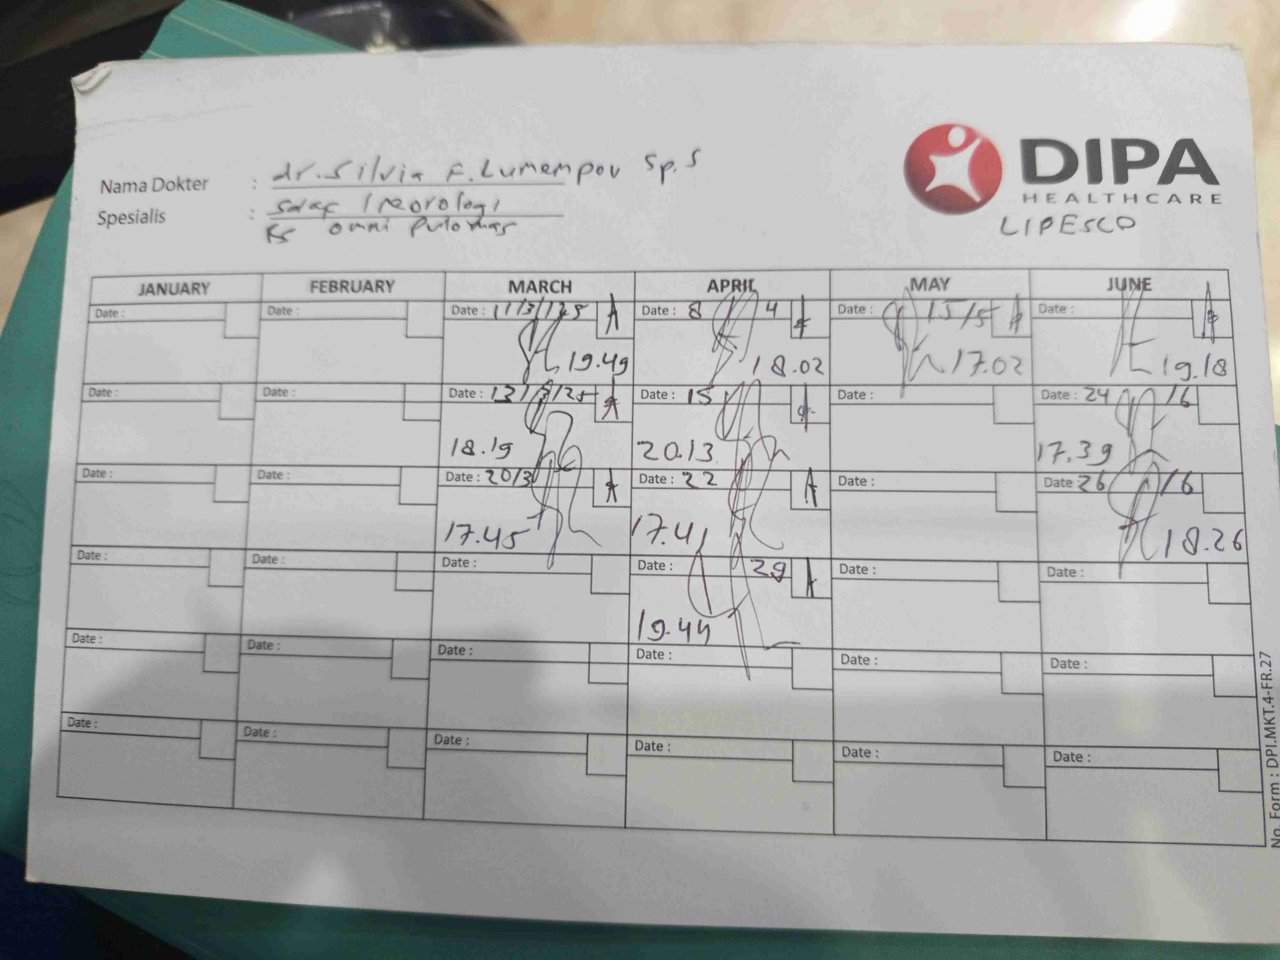 DIPA
HEALTHCARE
LIPESCO
Nama Dokter : dr. Silvia F. Lumempov Sp.S
Spesialis : Saraf / Neorologi
RS omni Pulomas
JANUARY FEBRUARY MARCH APRIL MAY JUNE
Date : Date : Date : 11/3/25 A Date : 8 4 Date : 15/5
19.49 18.02 17.02 19.18
Date : Date : Date : 13/3/25 Date : 15 Date : Date : 24 /6
18.19 20.13 17.39
Date : Date : Date : 20/3 Date : 22 A Date : Date 26 /6
17.45 17.41 18.26
Date : Date : Date : Date : 29 A Date : Date :
19.44
Date : Date : Date : Date : Date : Date :
Date : Date : Date : Date : Date : Date :
No. Form : DPI.MKT.4-FR.27